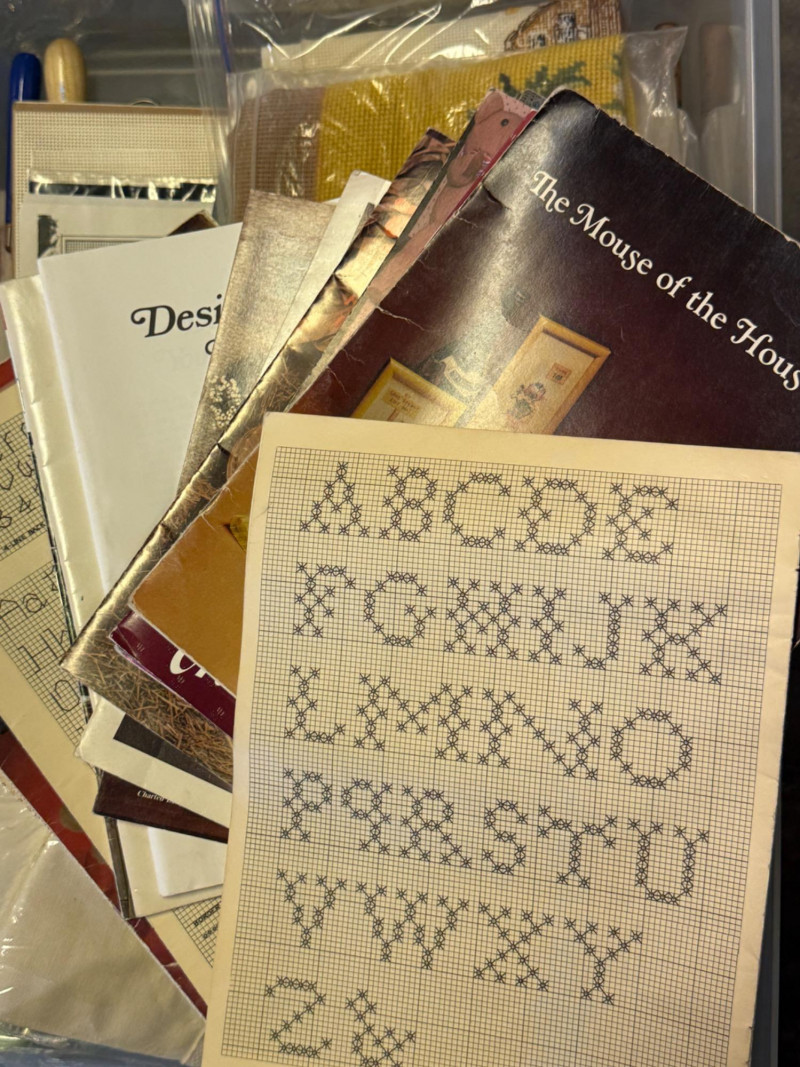 The Mouse of the Hous
Desi
A B C D E
F G H I J K
L M N O
P Q R S T U
V W X Y
Z &
Charles